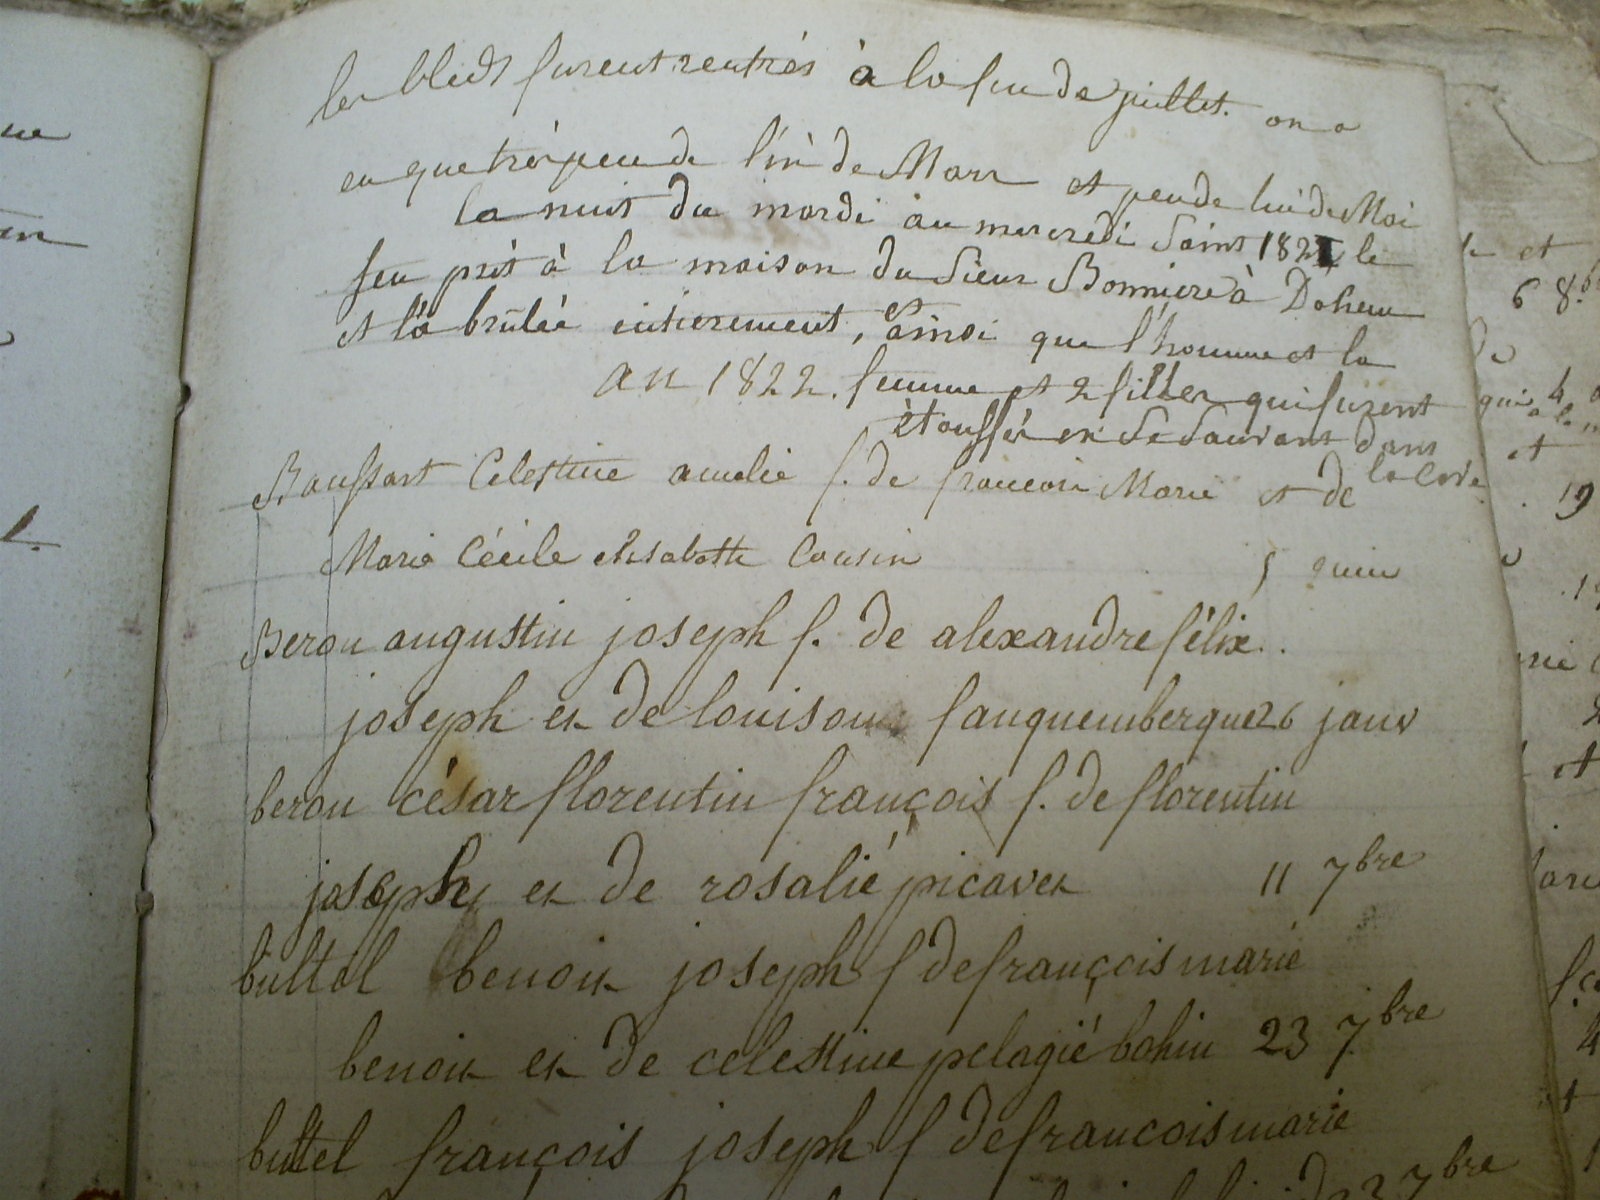 les bleds furent rentrés à la fin de juillet. on a
eu que très peu de lin de Mars et peu de lin de Mai
la nuit du mardi au mercredi Saint 1821 le
feu prit à la maison du Sieur Bonniere à Dohem
et l'a brûlée entierement, et ainsi que l'homme et la
an 1822. femme et 2 filles qui furent
étouffés en se sauvant dans
la cave
Baussart Celestine amelie f. de francois Marie et de
Marie Cécile elisabeth Cousin 5 juin
Berou augustin joseph f. de alexandre félix
joseph et de louison fauquembergue 26 janv
berou césar florentin françois f. de florentin
joseph et de rosalie picavet 11 7bre
bultel benoit joseph f de françois marie
benoit et de celestine pelagié bohin 23 7bre
bultel françois joseph f de francois marie
23 7bre
ne
6 8.b
et
qui
et
19